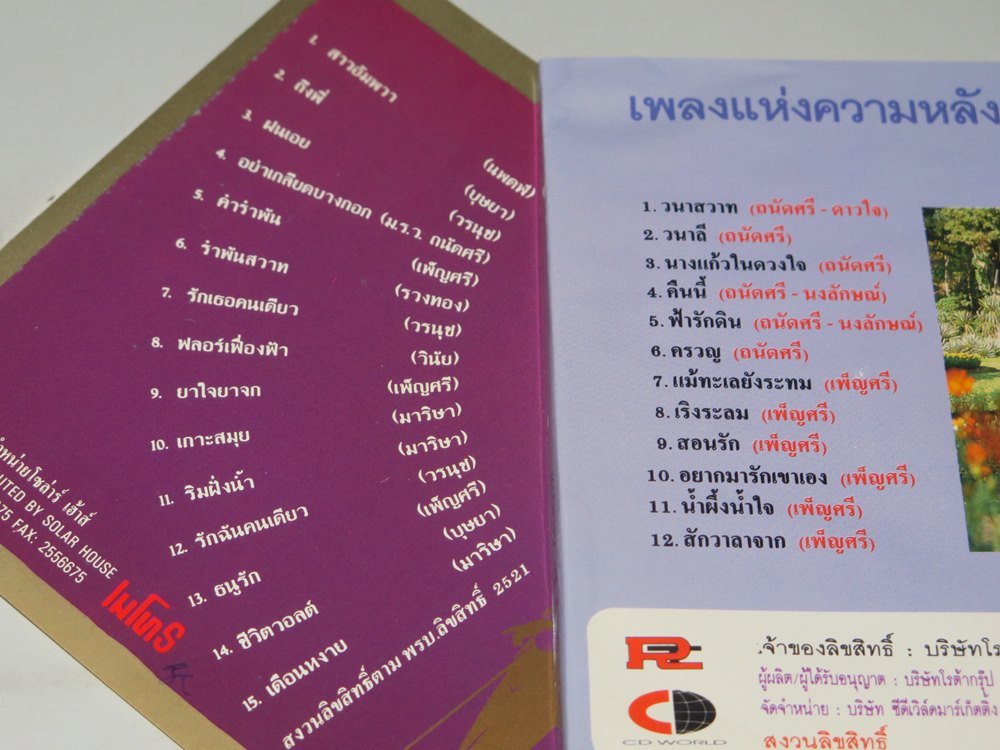 1. สาวอัมพวา (นพดฬ)
2. ถึงพี่ (บุษยา)
3. ฝนเอย (วรนุช)
4. อย่าเกลียดบางกอก (ม.ร.ว. ถนัดศรี)
5. คำรำพัน (เพ็ญศรี)
6. รำพันสวาท (รวงทอง)
7. รักเธอคนเดียว (วรนุช)
8. ฟลอร์เฟื่องฟ้า (วินัย)
9. ยาใจยาจก (เพ็ญศรี)
10. เกาะสมุย (มาริษา)
11. ริมฝั่งน้ำ (มาริษา)
12. รักฉันคนเดียว (วรนุช)
13. ธนูรัก (เพ็ญศรี)
14. ชีวิตวอลต์ (บุษยา)
15. เดือนหงาย (มาริษา)
สงวนลิขสิทธิ์ตาม พรบ.ลิขสิทธิ์ 2521
โซล่าร์ เฮ้าส์
BY SOLAR HOUSE
FAX: 2556675
เมโทร
เพลงแห่งความหลัง
1. วนาสวาท (ถนัดศรี - ดาวใจ)
2. วนาลี (ถนัดศรี)
3. นางแก้วในดวงใจ (ถนัดศรี)
4. คืนนี้ (ถนัดศรี - นงลักษณ์)
5. ฟ้ารักดิน (ถนัดศรี - นงลักษณ์)
6. ครวญ (ถนัดศรี)
7. แม้ทะเลยังระทม (เพ็ญศรี)
8. เริงระลม (เพ็ญศรี)
9. สอนรัก (เพ็ญศรี)
10. อยากมารักเขาเอง (เพ็ญศรี)
11. น้ำผึ้งน้ำใจ (เพ็ญศรี)
12. สักวาลาจาก (เพ็ญศรี)
เจ้าของลิขสิทธิ์ : บริษัทโร
ผู้ผลิต/ผู้ได้รับอนุญาต : บริษัทโรต้ากรุ๊ป
จัดจำหน่าย : บริษัท ซีดีเวิล์ดมาร์เก็ตติ้ง
สงวนลิขสิทธิ์
CD WORLD